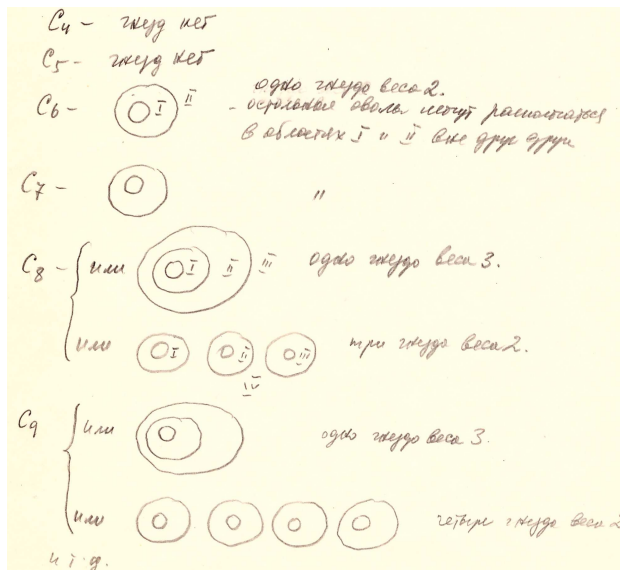 C4 - гнезд нет
C5 - гнезд нет
C6 - I II одно гнездо веса 2.
- остальные овалы могут располагаться
в областях I и II вне друг друга
C7 - "
C8 - или I II III одно гнездо веса 3.
или I II III три гнезда веса 2.
IV
C9 или одно гнездо веса 3.
или четыре гнезда веса 2
и т.д.